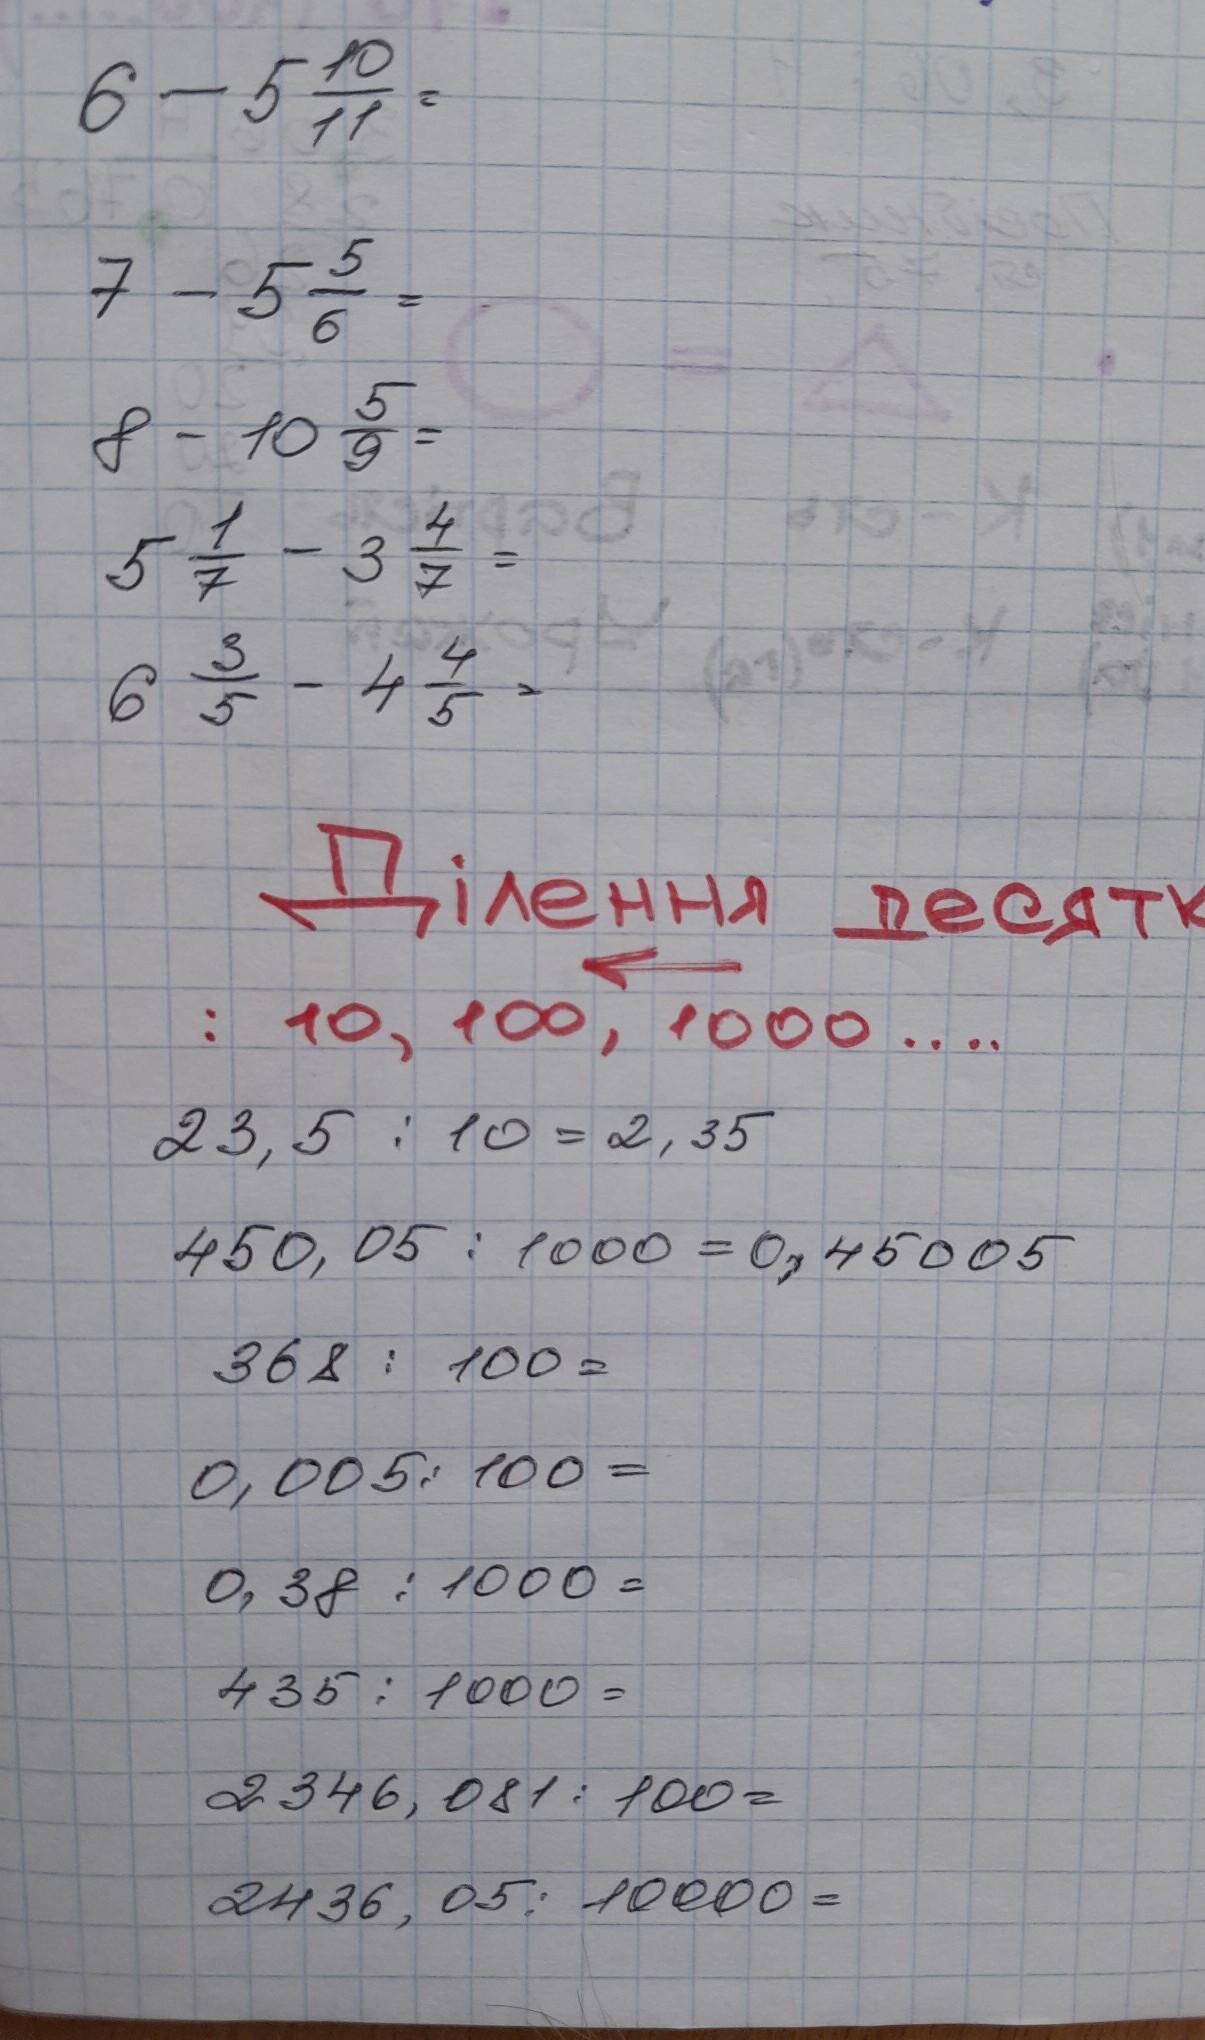 6 - 5 10/11 =
7 - 5 5/6 =
8 - 10 5/9 =
5 1/7 - 3 4/7 =
6 3/5 - 4 4/5 =
Ділення десятк
: 10, 100, 1000 ....
23,5 : 10 = 2,35
450,05 : 1000 = 0,45005
368 : 100 =
0,005 : 100 =
0,38 : 1000 =
435 : 1000 =
2346,081 : 100 =
2436,05 : 10000 =